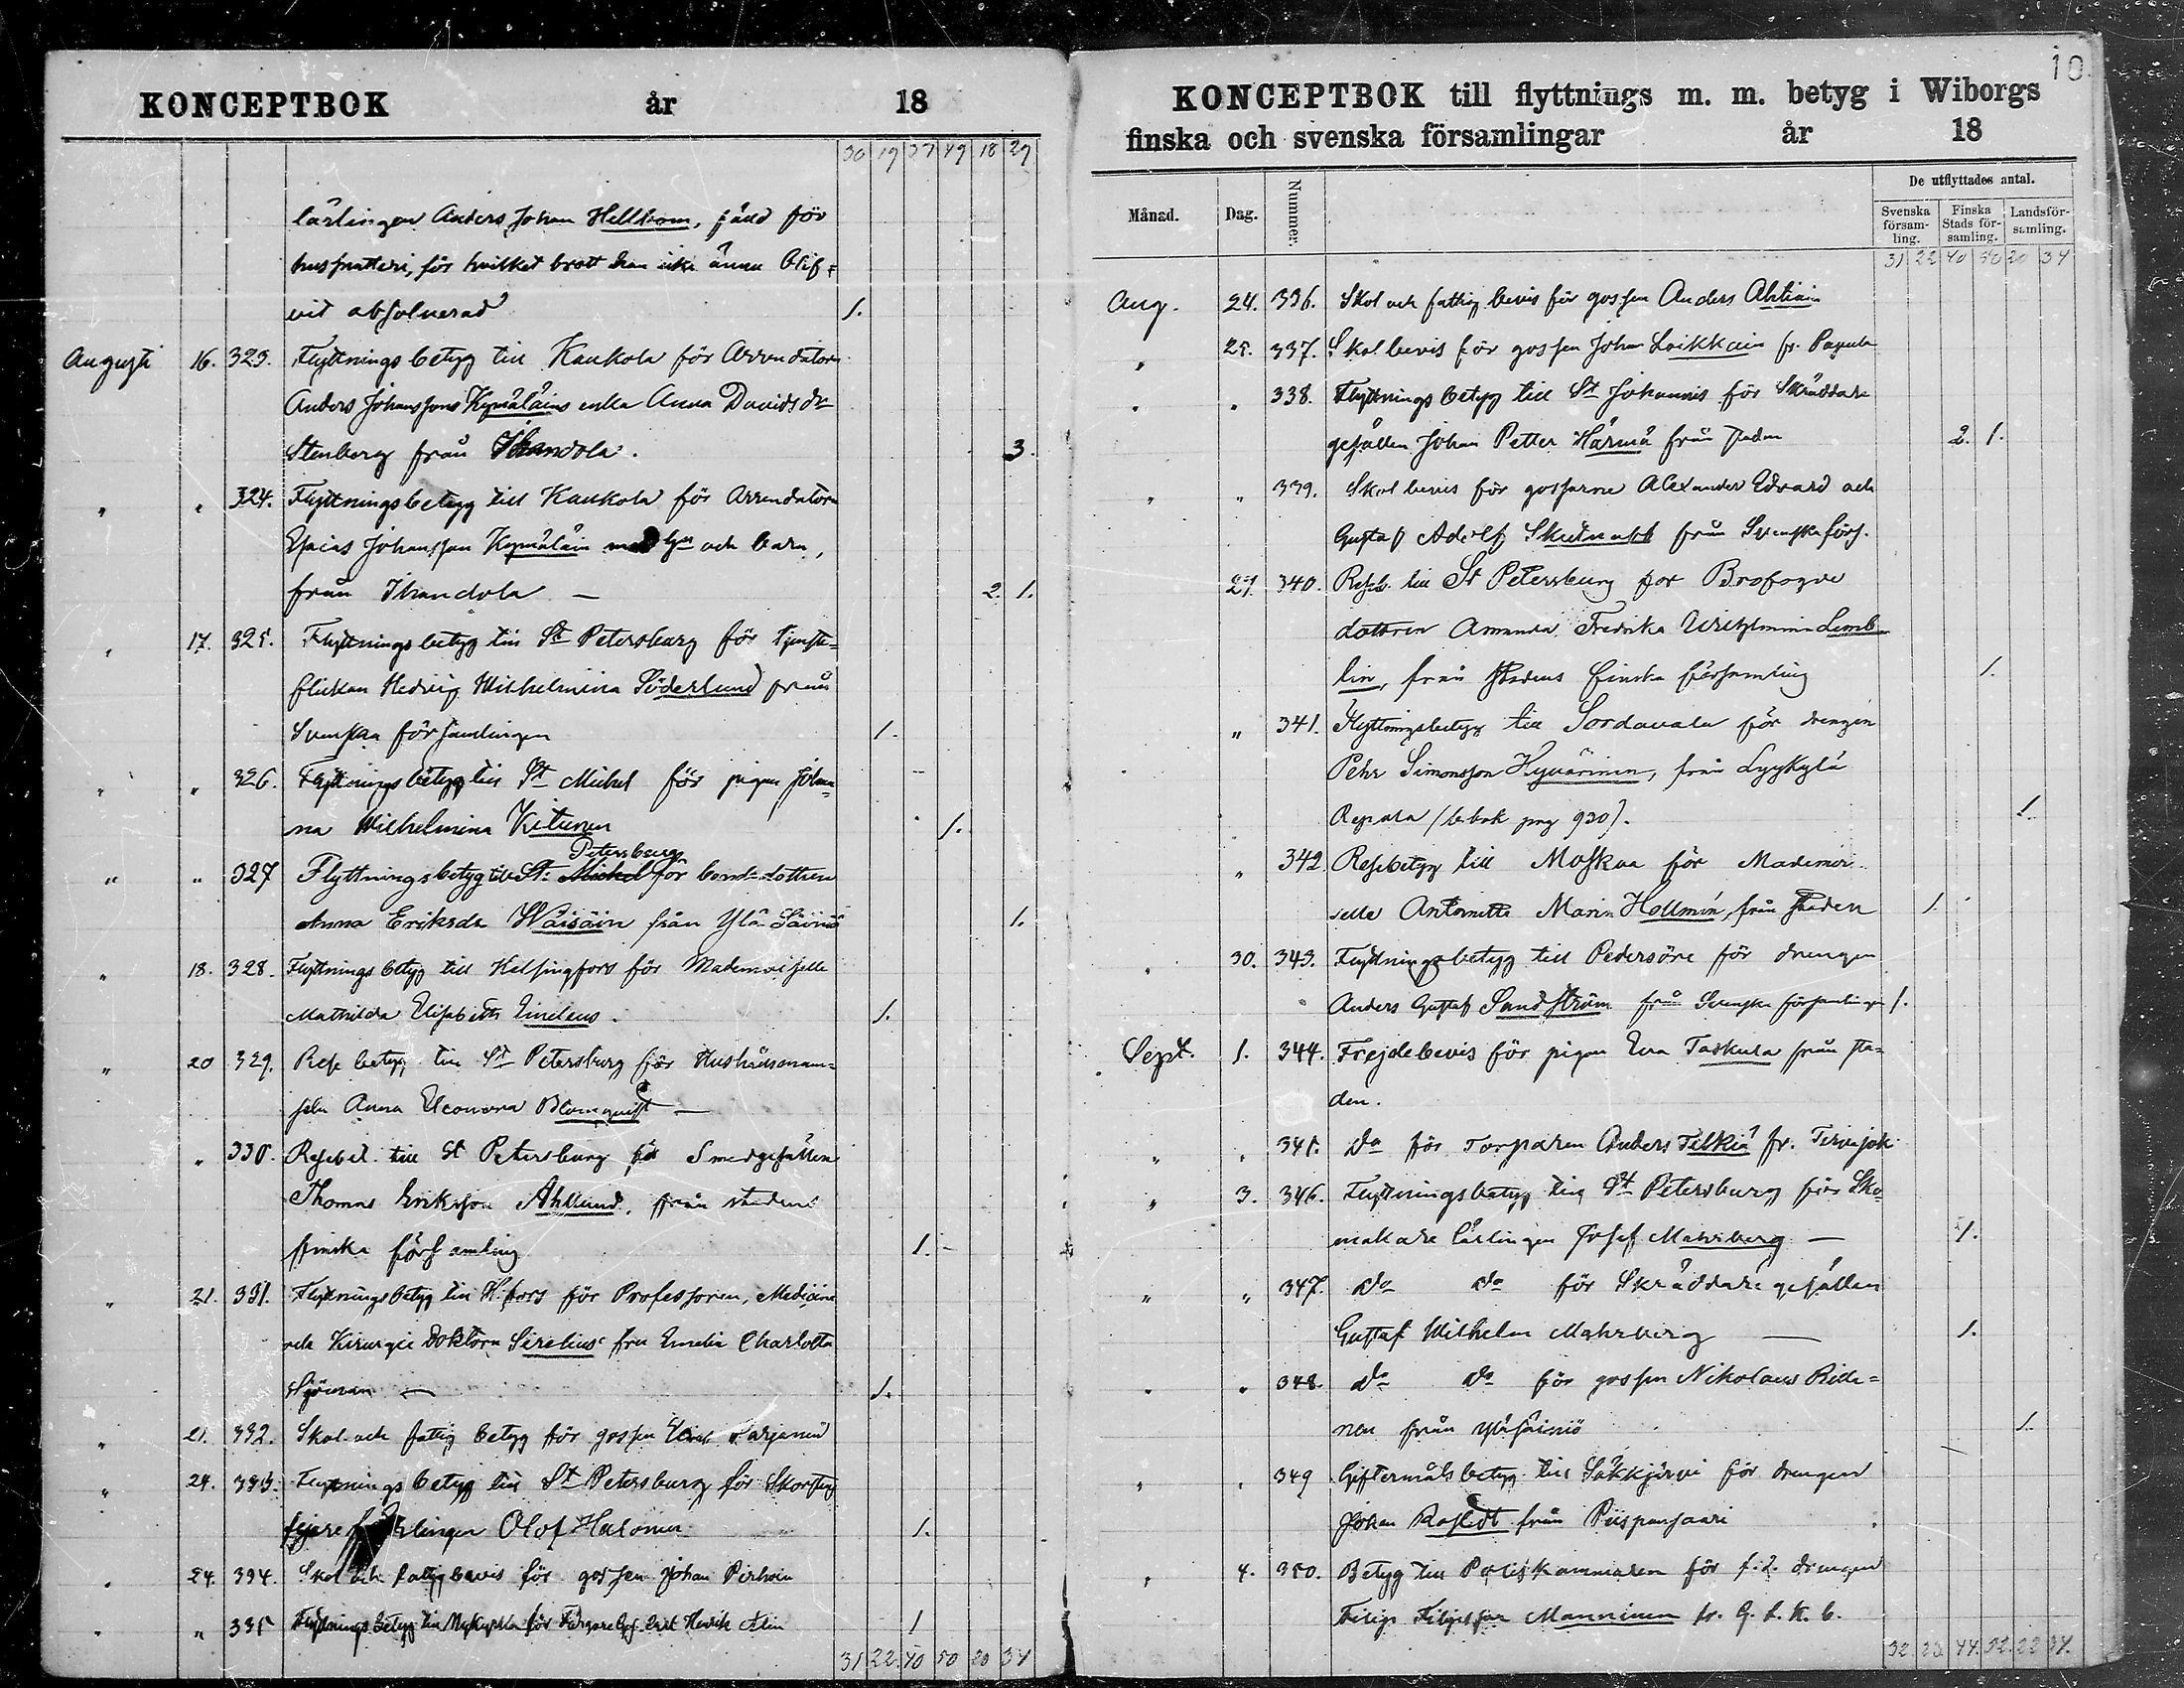 KONCEPTBOK år 18
30 19 37 49 18 29
lärlingen Anders Johan Hellstrom, fäld för
hussnatteri, för hvilket brott han icke ännu blif-
vit absolverad 1.
Augusti 16. 323. Flyttningsbetyg till Kaukola för Arrendatorn
Anders Johanssons Kymäläins enka Anna Davidsdr
Stenberg från Ihandola. 3.
" " 324. Flyttningsbetyg till Kaukola för Arrendatorn
Esaias Johansson Kymäläin med hu och barn,
från Ihandola — 2. 1.
" 17. 325. Flyttningsbetyg till St Petersburg för tjenste-
flickan Hedvig Wilhelmina Söderlund från
Svenska församlingen 1.
" " 326. Flyttningsbetyg till St Michel för pigan Johan-
na Wilhelmina Kitunen 1.
Petersburg
" " 327 Flyttningsbetyg till St: Michel för bondedottren
Anna Eriksdr Wäisäin från Ylä-Säiniö 1.
" 18. 328. Flyttningsbetyg till Helsingfors för Mademoiselle
Mathilda Elisabeth 1.
" 20 329. Resebetyg till St Petersburg för Hushållsmam-
seln Anna Eleonora Blomqvist —
" 330. Resebet. till St Petersburg för Smedgesällen
Thomas Eriksson Ahllund, från stadens
finska församling 1. -
" 21. 331. Flyttningsbetyg till H:fors för Professoren, Medicine
och Kirurgie Doktorn Sirelius fru Emelie Charlotta
Sjöman — 1.
" 21. 332. Skol- och fattig betyg för gossen
" 24. 333. Flyttningsbetyg till St Petersburg för Skorsten
fejare lärlingen Olof Halonen 1.
" 24. 334. Skol och fattigbevis för gossen Johan Pirhoin
" " 335 Flyttningsbetyg till Nykyrka för Färgare Ges. Erik Henrik Elin 1
31 22 40 50 20 34
10.
KONCEPTBOK till flyttnings m. m. betyg i Wiborgs
finska och svenska församlingar år 18
Månad. Dag. Nummer. De utflyttades antal.
Svenska församling. Finska Stads församling. Landsförsamling.
31 22 40 50 20 34
Aug. 24. 336. Skol och fattig bevis för gossen Anders Ahtiain
" 25. 337. Skol bevis för gossen Johan Loikkain fr. Papula
" " 338. Flyttningsbetyg till St Johannis för Skräddare
gesällen Johan Petter Härmä från staden 2. 1.
" " 339. Skol bevis för gossarne Alexander Edvard och
Gustaf Adolf Skutnabb från Svenska förs.
27. 340. Reseb. till St Petersburg for Brofogde
dottren Amanda Fredrika Wilhelmina Lemb-
lin, från stadens finska församling 1.
" 341. Flyttningsbetyg till Sordavala för drengen
Pehr Simonsson Hyvärinen, från Lyykylä
Repola (l.bok pag 930). 1.
" 342. Resebetyg till Moskva för Mademoi-
selle Antoinette Maria Hollmén, från staden 1.
" 30. 343. Flyttningsbetyg till Pedersöre för drengen
Anders Gustaf Sandström från Svenska församlingen 1.
Sept. 1. 344. Frejdebevis för pigan Eva Taskula från sta-
den.
" " 345. do för Torparen Anders Tilkiä fr. Tervajoki
" 3. 346. Flyttningsbetyg till St Petersburg för Sko-
makare Lärlingen Josef Mahrberg — 1.
" " 347. do do för Skräddare gesällen
Gustaf Wilhelm Mahrberg — 1.
" " 348. do do för gossen Nikolaus Ritta-
nen från Yläsäiniö 1.
" " 349 Giftermålsbetyg till Säkkijärvi för drengen
Johan Rastedt från Piispansaari
" 4. 350. Betyg till Poliskammaren för f.d. drengen
Filip Filipsson Manninen fr. G. S. K. b.
32 23. 44. 52. 22 34.